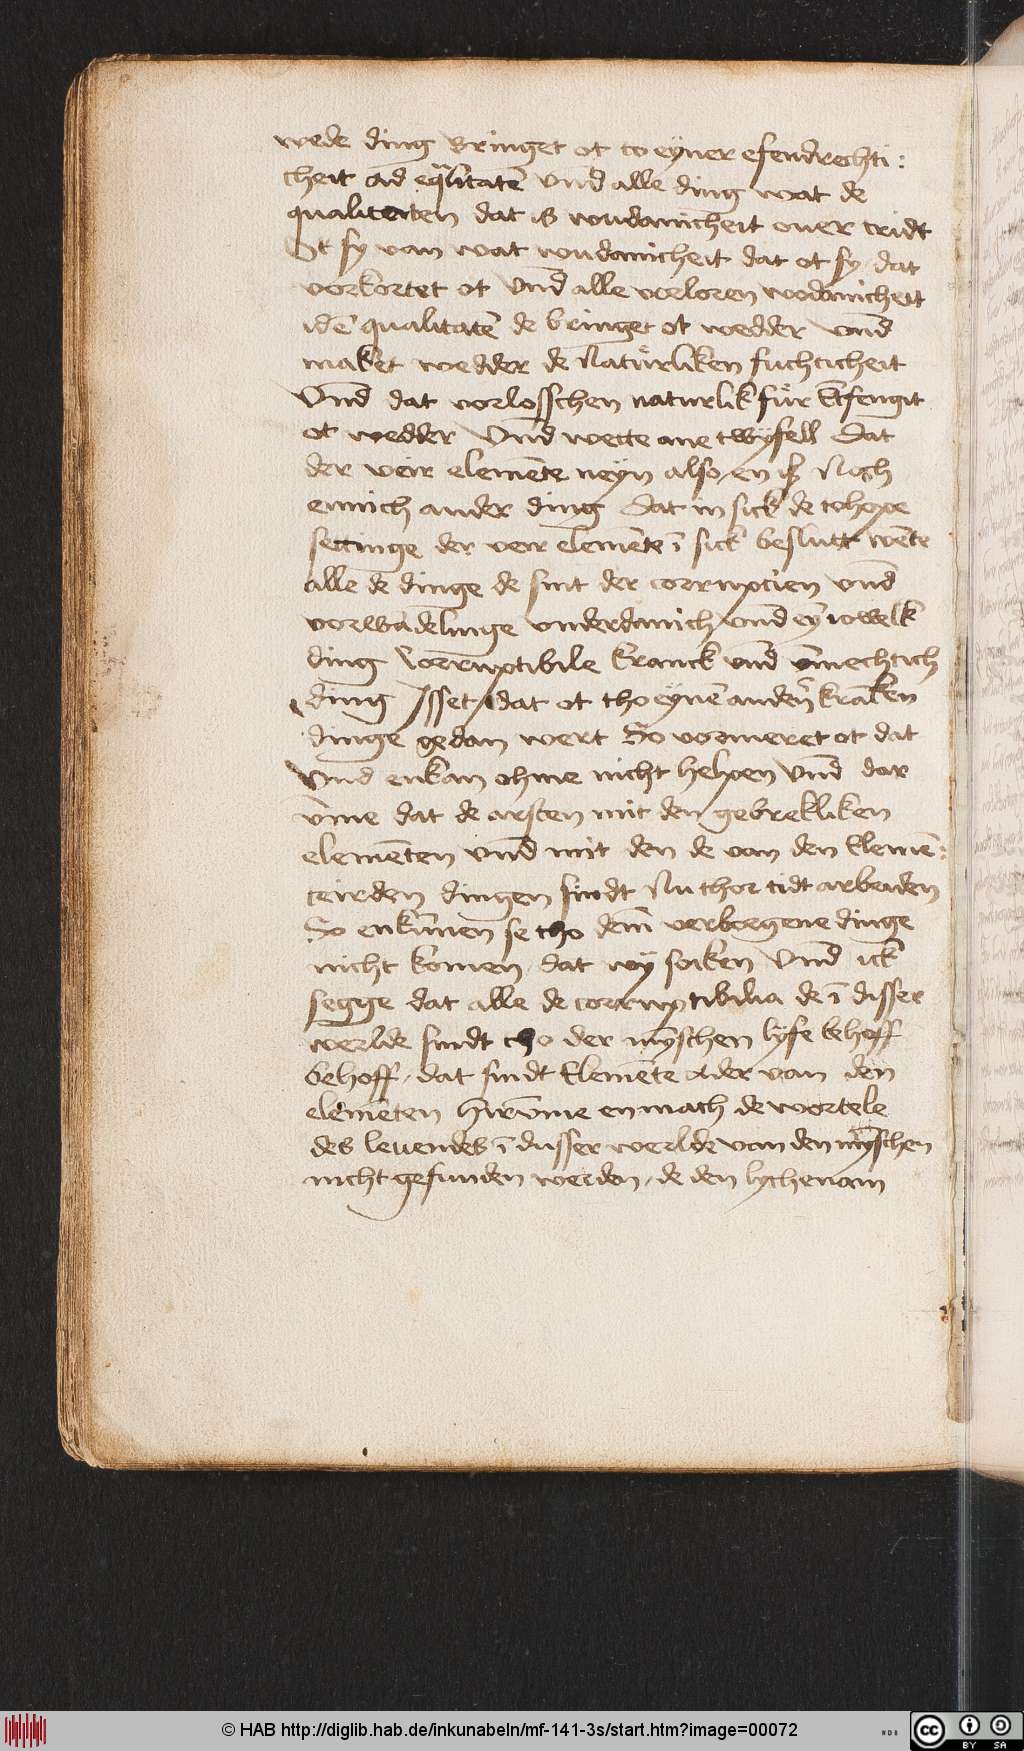 wede ding Bringet ot to eyner efendrechti:
cheit ad eq̄litatē vnd alle ding wat de
qualiteten dat is wudanicheit ouer tridt
Ot sy van wat wudanicheit dat ot sy / dat
vorkortet ot vnd alle vorloren wodanicheit
idē qualitatē de bringet ot wedder vnd
maket wedder de Naturliken fuchticheit
Vnd dat vorlosschen naturlik für
ot wedder Vnd wette ane twyfell Dat
der veir elemēte neyn also en is Noch
ennich ander ding Dat in sick de tohope
settinge der veir elemēte ī sick beslutt wēte
alle de dinge de sint der corrupcien vnd
vorwādelinge vnderdanich vnd ey iowelk
ding Corruptibile kranck vnd vnmechtich
ding Isset / dat ot tho eynē andeñ krākēn
dinge gedan wert So vormeret ot dat
Vnd enkan ohme nicht helpen Vnd dar
vm̄e dat de arsten mit den gebrekliken
elemēten vnd mit den de van den Elemē:
teirden dingen sindt Nu thor tidt arbeiden
So enkūnen se tho dem verborgene dinge
nicht komen / dat wy soiken Vnd ick
segge dat alle de corruptibilia de ī disser
werlde sindt tho der mȳschen lyfe behoff
behoff / dat sindt Elemēte ader van den
elemēten Hirūme en mach de wortele
des leuendes ī dusser werlde van den mȳschen
nicht gefunden werden / de den lychenam
© HAB http://diglib.hab.de/inkunabeln/mf-141-3s/start.htm?image=00072
cc BY SA